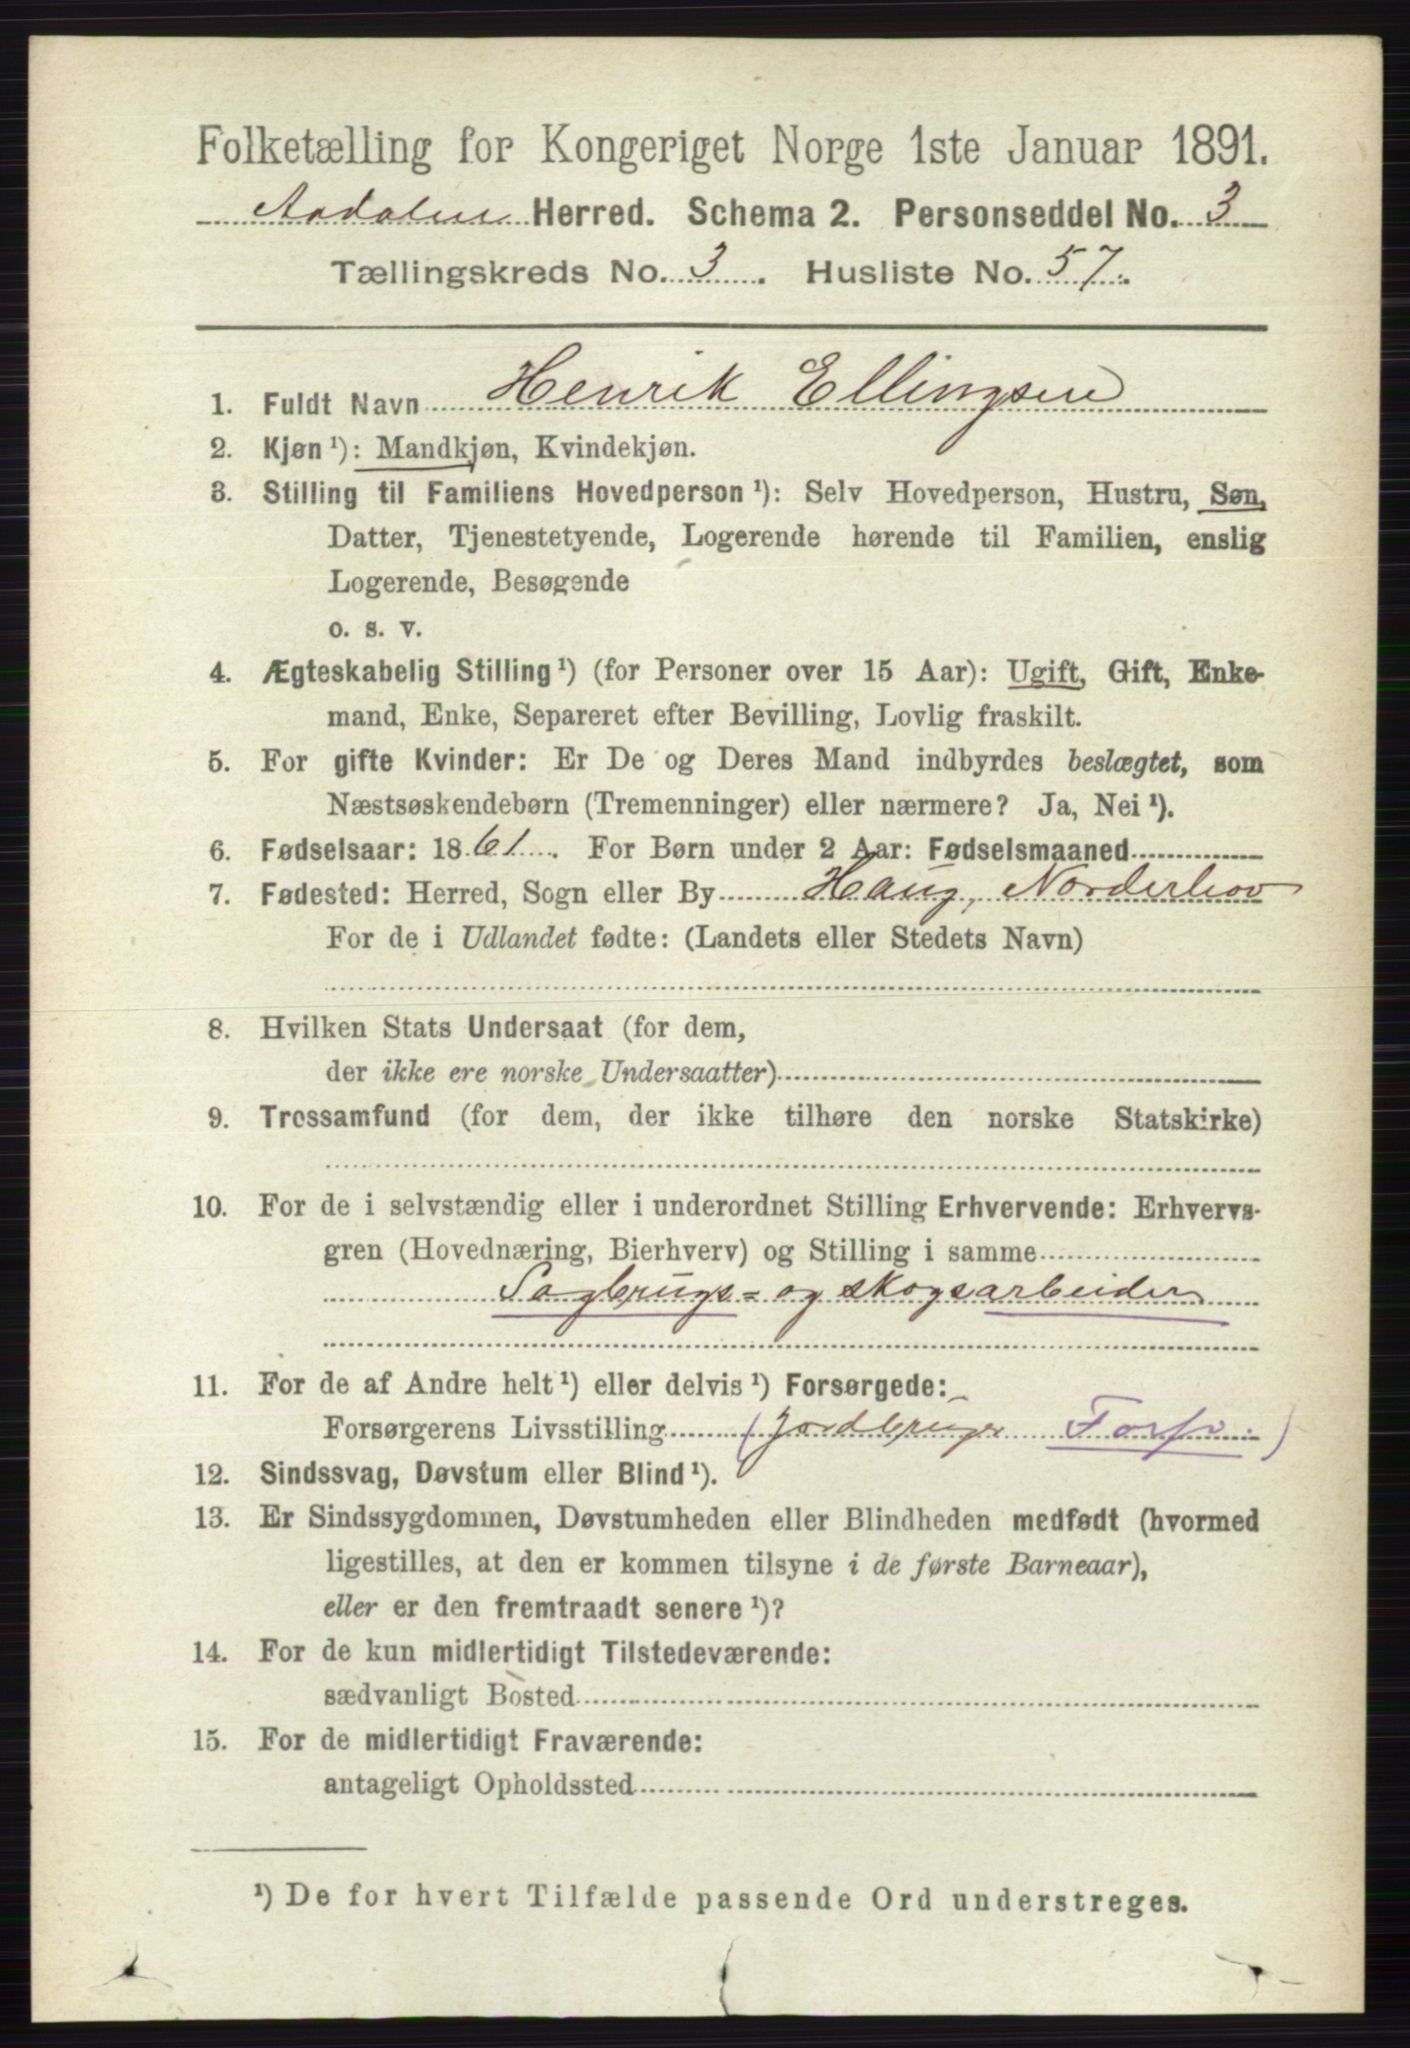 Folketælling for Kongeriget Norge 1ste Januar 1891.
Aadalen Herred. Schema 2. Personseddel No. 3
Tællingskreds No. 3. Husliste No. 57.
1. Fuldt Navn Henrik Ellingsen
2. Kjøn ¹): Mandkjøn, Kvindekjøn.
3. Stilling til Familiens Hovedperson ¹): Selv Hovedperson, Hustru, Søn,
Datter, Tjenestetyende, Logerende hørende til Familien, enslig
Logerende, Besøgende
o. s. v.
4. Ægteskabelig Stilling ¹) (for Personer over 15 Aar): Ugift, Gift, Enke-
mand, Enke, Separeret efter Bevilling, Lovlig fraskilt.
5. For gifte Kvinder: Er De og Deres Mand indbyrdes beslægtet, som
Næstsøskendebørn (Tremenninger) eller nærmere? Ja, Nei ¹).
6. Fødselsaar: 1861. For Børn under 2 Aar: Fødselsmaaned
7. Fødested: Herred, Sogn eller By Haug, Norderhov
For de i Udlandet fødte: (Landets eller Stedets Navn)
8. Hvilken Stats Undersaat (for dem,
der ikke ere norske Undersaatter)
9. Trossamfund (for dem, der ikke tilhøre den norske Statskirke)
10. For de i selvstændig eller i underordnet Stilling Erhvervende: Erhvervs-
gren (Hovednæring, Bierhverv) og Stilling i samme
Sagbrugs= og skogsarbeider
11. For de af Andre helt ¹) eller delvis ¹) Forsørgede:
Forsørgerens Livsstilling (Jordbruger Fors.)
12. Sindssvag, Døvstum eller Blind ¹).
13. Er Sindssygdommen, Døvstumheden eller Blindheden medfødt (hvormed
ligestilles, at den er kommen tilsyne i de første Barneaar),
eller er den fremtraadt senere ¹)?
14. For de kun midlertidigt Tilstedeværende:
sædvanligt Bosted
15. For de midlertidigt Fraværende:
antageligt Opholdssted
¹) De for hvert Tilfælde passende Ord understreges.